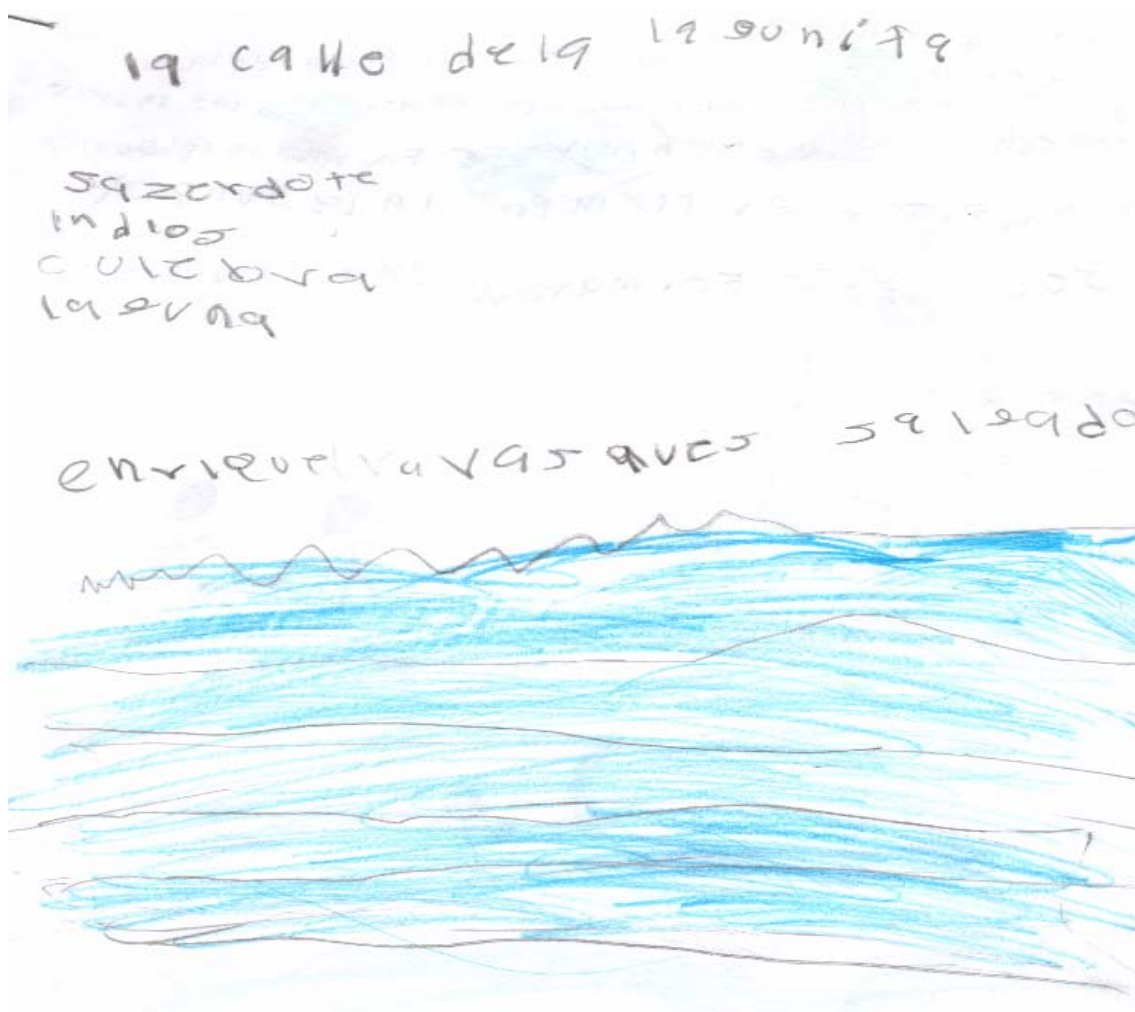 la calle dela lagunita
sazerdote
indios
culebra
laguna
enrique vasques salgado